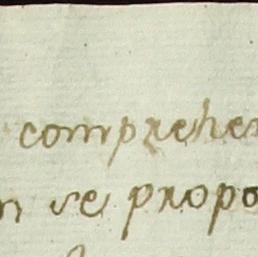 comprehen
n se propo